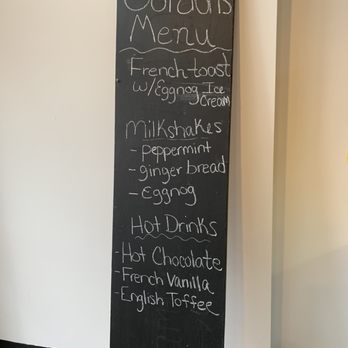 Gordons
Menu
French toast
w/Eggnog Ice
Cream
Milkshakes
- peppermint
- ginger bread
- Eggnog
Hot Drinks
- Hot Chocolate
- French Vanilla
- English Toffee